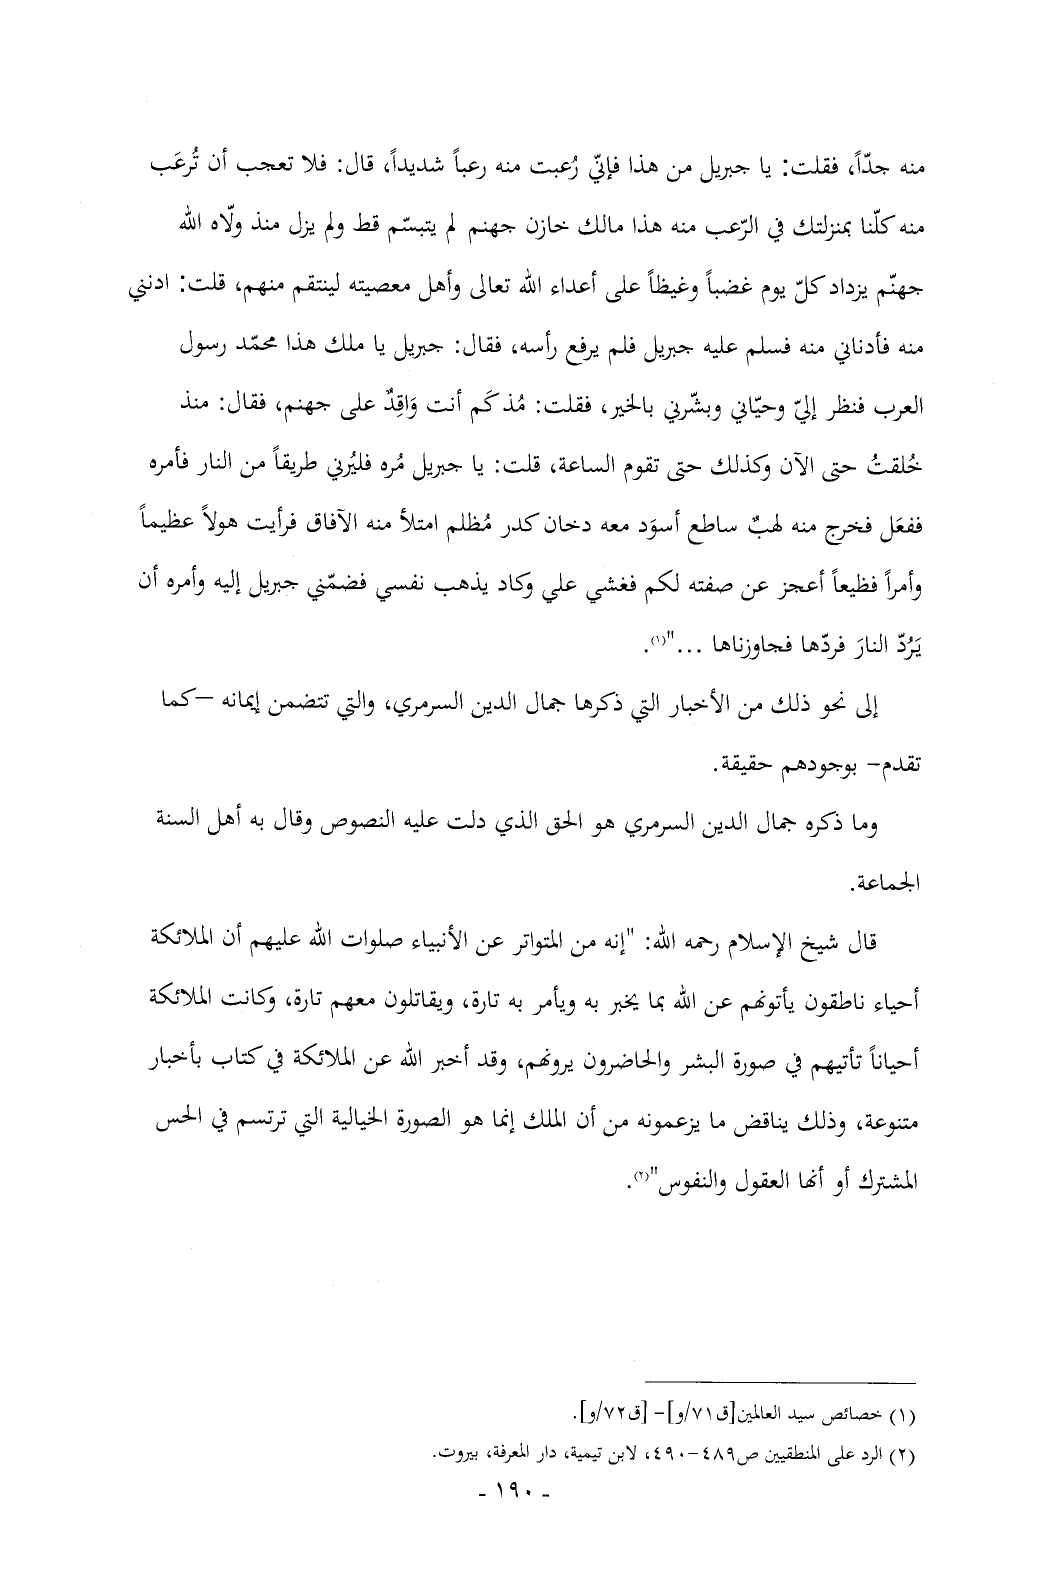 منه جدّاً، فقلت: يا جبريل من هذا فإنيّ رُعبت منه رعباً شديداً، قال: فلا تعجب أن تُرعَب
منه كلّنا بمنزلتك في الرّعب منه هذا مالك خازن جهنم لم يتبسّم قط ولم يزل منذ ولّاه الله
جهنّم يزداد كلّ يوم غضباً وغيظاً على أعداء الله تعالى وأهل معصيته لينتقم منهم، قلت: ادنني
منه فأدناني منه فسلم عليه جبريل فلم يرفع رأسه، فقال: جبريل يا ملك هذا محمّد رسول
العرب فنظر إليّ وحيّاني وبشّرني بالخير، فقلت: مُذكَم أنت وَاقِدٌ على جهنم، فقال: منذ
خُلقتُ حتى الآن وكذلك حتى تقوم الساعة، قلت: يا جبريل مُره فليُرني طريقاً من النار فأمره
ففعَل فخرج منه لهبٌ ساطع أسوَد معه دخان كدر مُظلم امتلأ منه الآفاق فرأيت هولاً عظيماً
وأمراً فظيعاً أعجز عن صفته لكم فغشي علي وكاد يذهب نفسي فضمّني جبريل إليه وأمره أن
يَرُدّ النارَ فردّها فجاوزناها ..."(١).
إلى نحو ذلك من الأخبار التي ذكرها جمال الدين السرمري، والتي تتضمن إيمانه –كما
تقدم– بوجودهم حقيقة.
وما ذكره جمال الدين السرمري هو الحق الذي دلت عليه النصوص وقال به أهل السنة
الجماعة.
قال شيخ الإسلام رحمه الله: "إنه من المتواتر عن الأنبياء صلوات الله عليهم أن الملائكة
أحياء ناطقون يأتونهم عن الله بما يخبر به ويأمر به تارة، ويقاتلون معهم تارة، وكانت الملائكة
أحياناً تأتيهم في صورة البشر والحاضرون يرونهم، وقد أخبر الله عن الملائكة في كتاب بأخبار
متنوعة، وذلك يناقض ما يزعمونه من أن الملك إنما هو الصورة الخيالية التي ترتسم في الحس
المشترك أو أنها العقول والنفوس"(٢).
(١) خصائص سيد العالمين[ق٧١/و]– [ق٧٢/و].
(٢) الرد على المنطقيين ص٤٨٩–٤٩٠، لابن تيمية، دار المعرفة، بيروت.
- ١٩٠ -